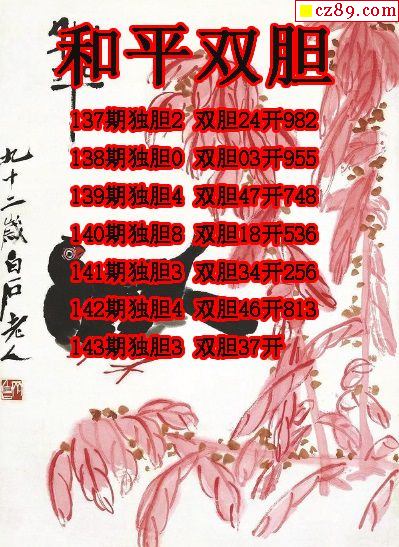 cz89.com
和平双胆
137期独胆2 双胆24开982
138期独胆0 双胆03开955
139期独胆4 双胆47开748
140期独胆8 双胆18开536
141期独胆3 双胆34开256
142期独胆4 双胆46开813
143期独胆3 双胆37开
九十二歲白石老人